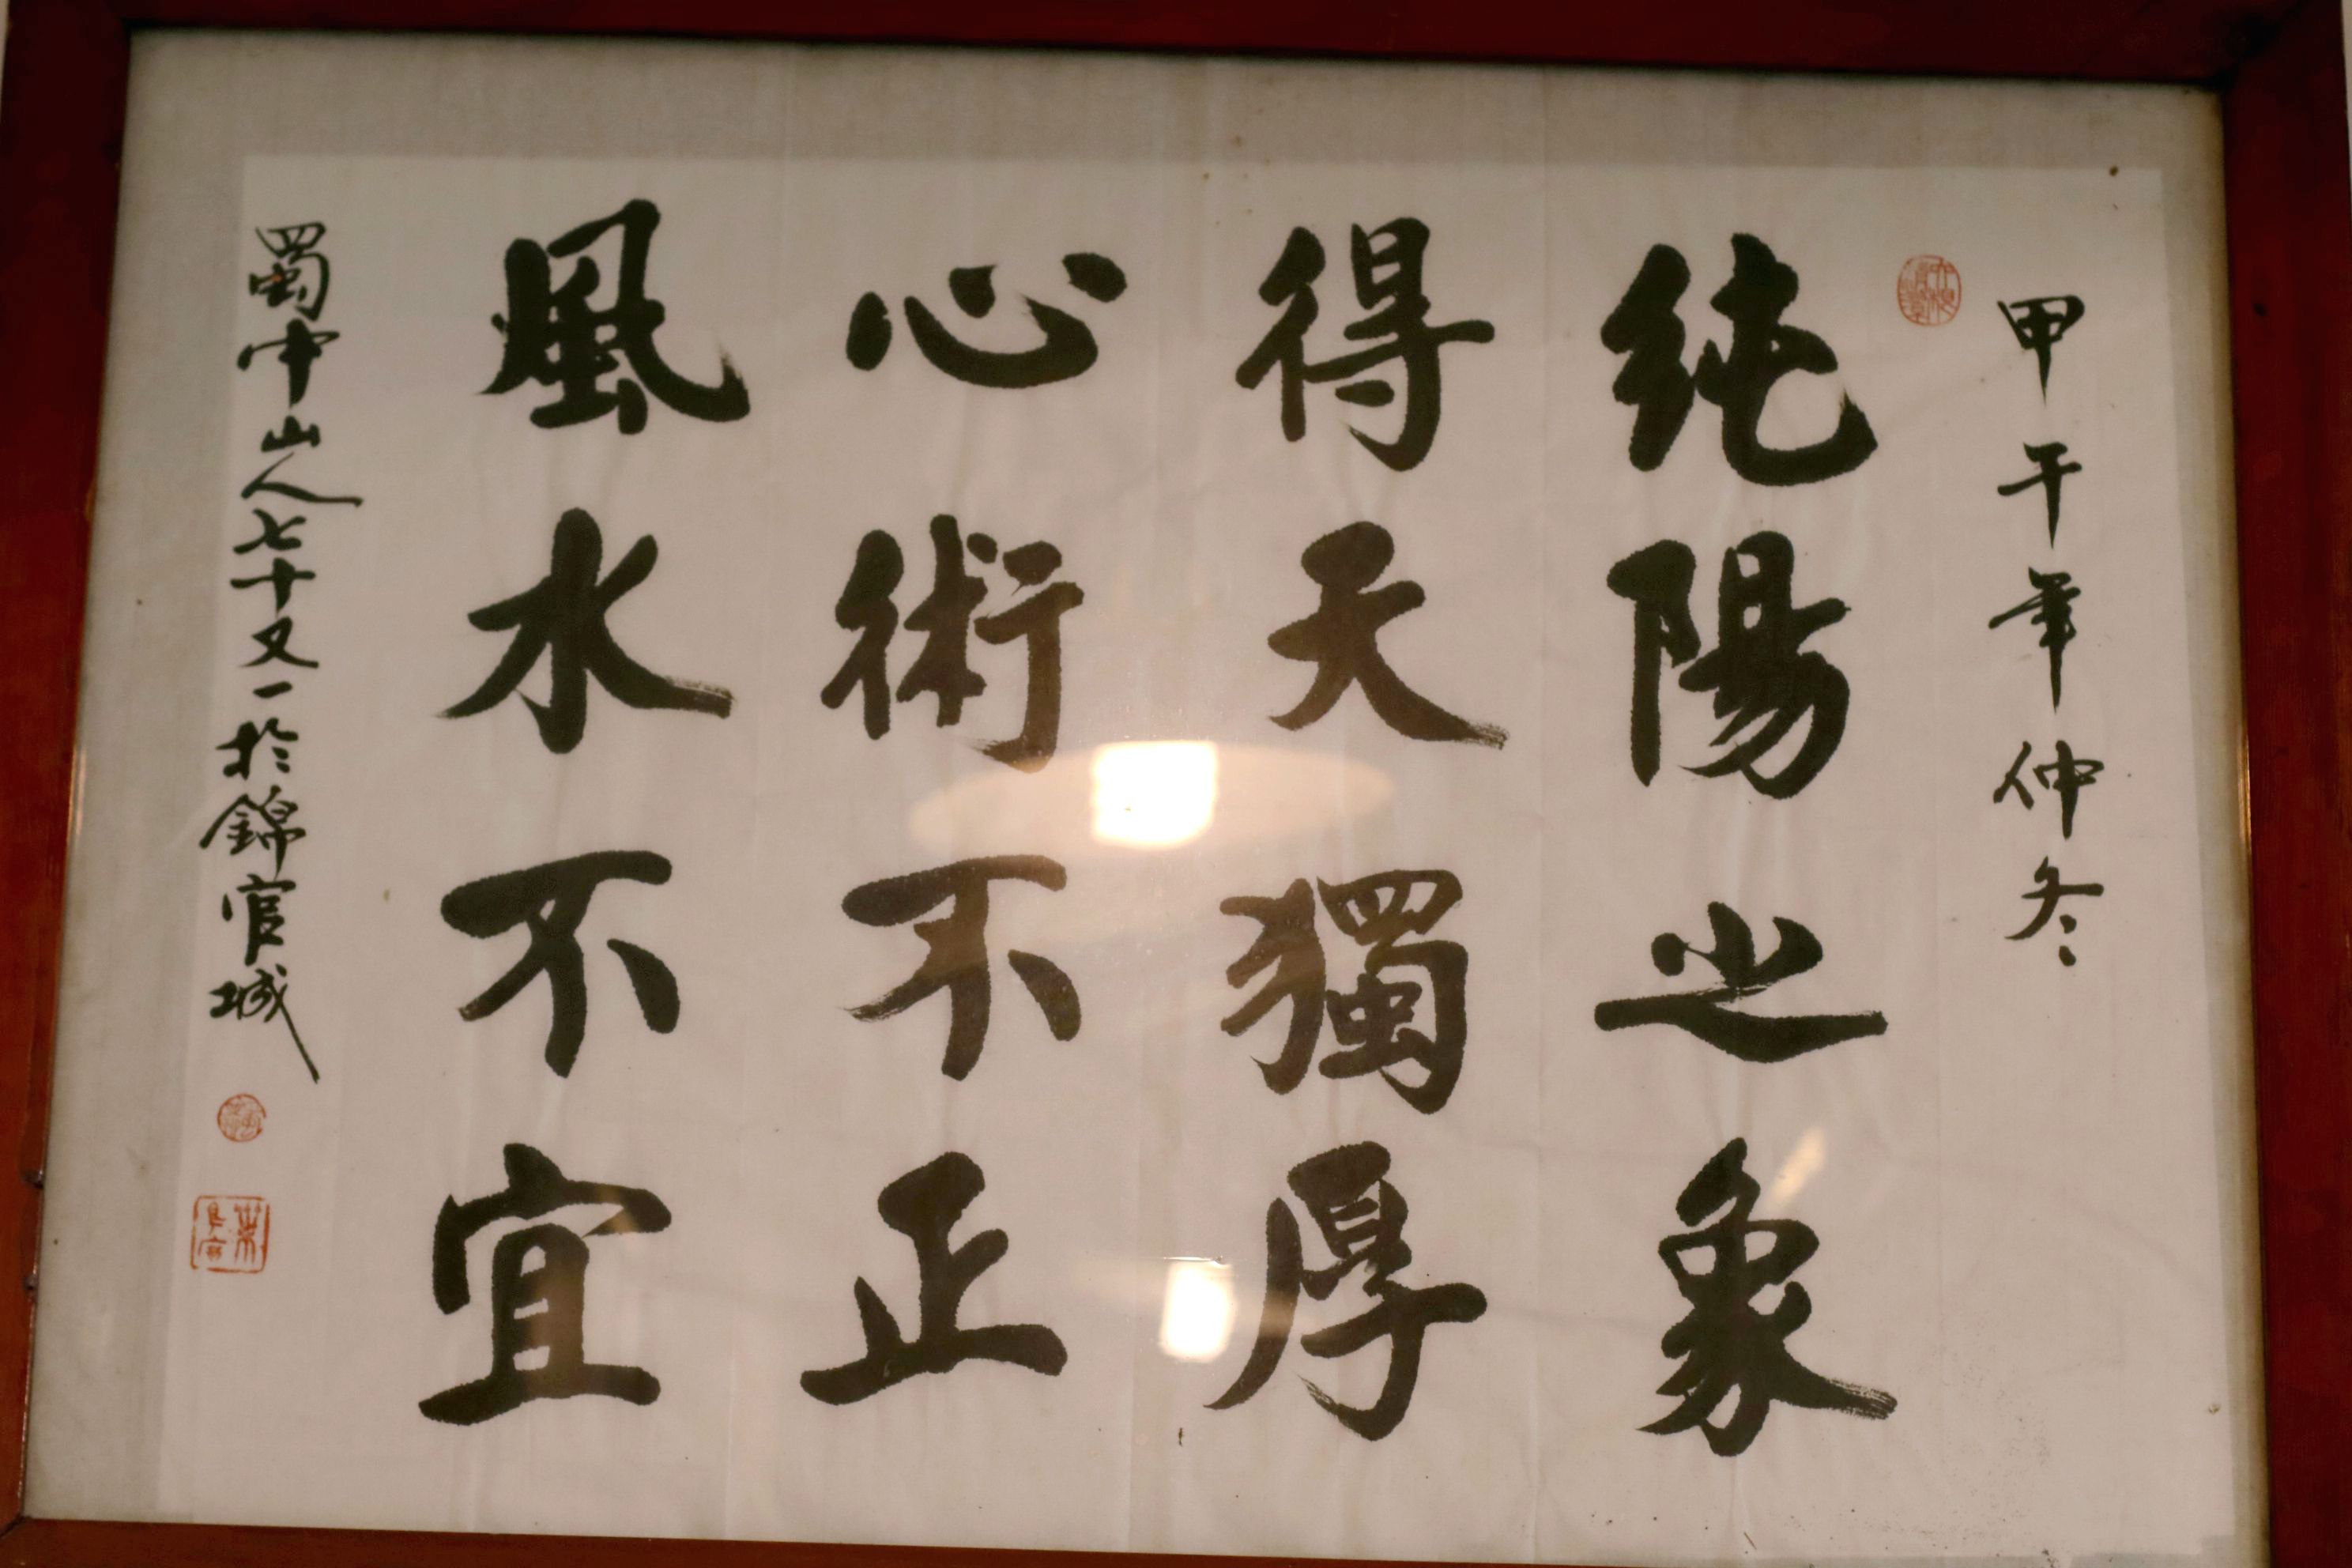 甲午年仲冬
純陽之象
得天獨厚
心術不正
風水不宜
蜀中山人七十又一於錦官城